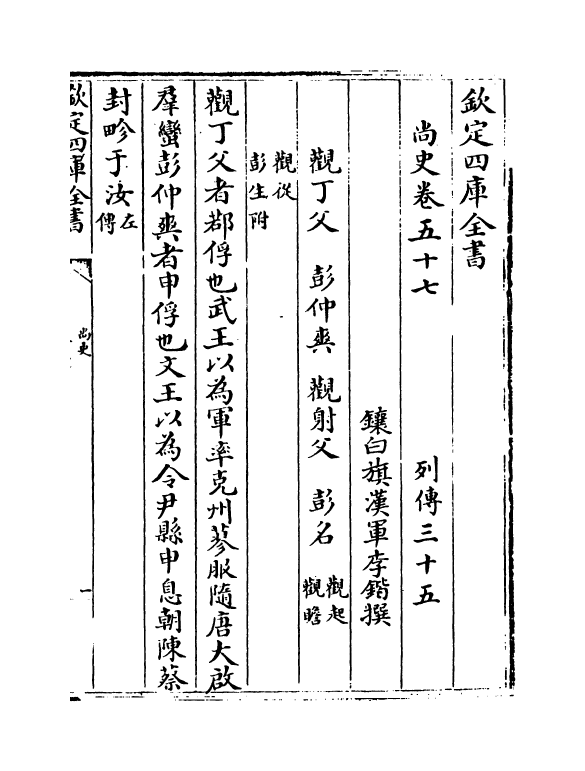 欽定四庫全書
尚史卷五十七　列傳三十五
鑲白旗漢軍李鍇撰
觀丁父　彭仲爽　觀射父　彭名　觀起　觀瞻
觀從　彭生附
觀丁父者鄀俘也武王以為軍率克州蓼服隨唐大啟
羣蠻彭仲爽者申俘也文王以為令尹縣申息朝陳蔡
封畛于汝左傳
欽定四庫全書
尚史
一